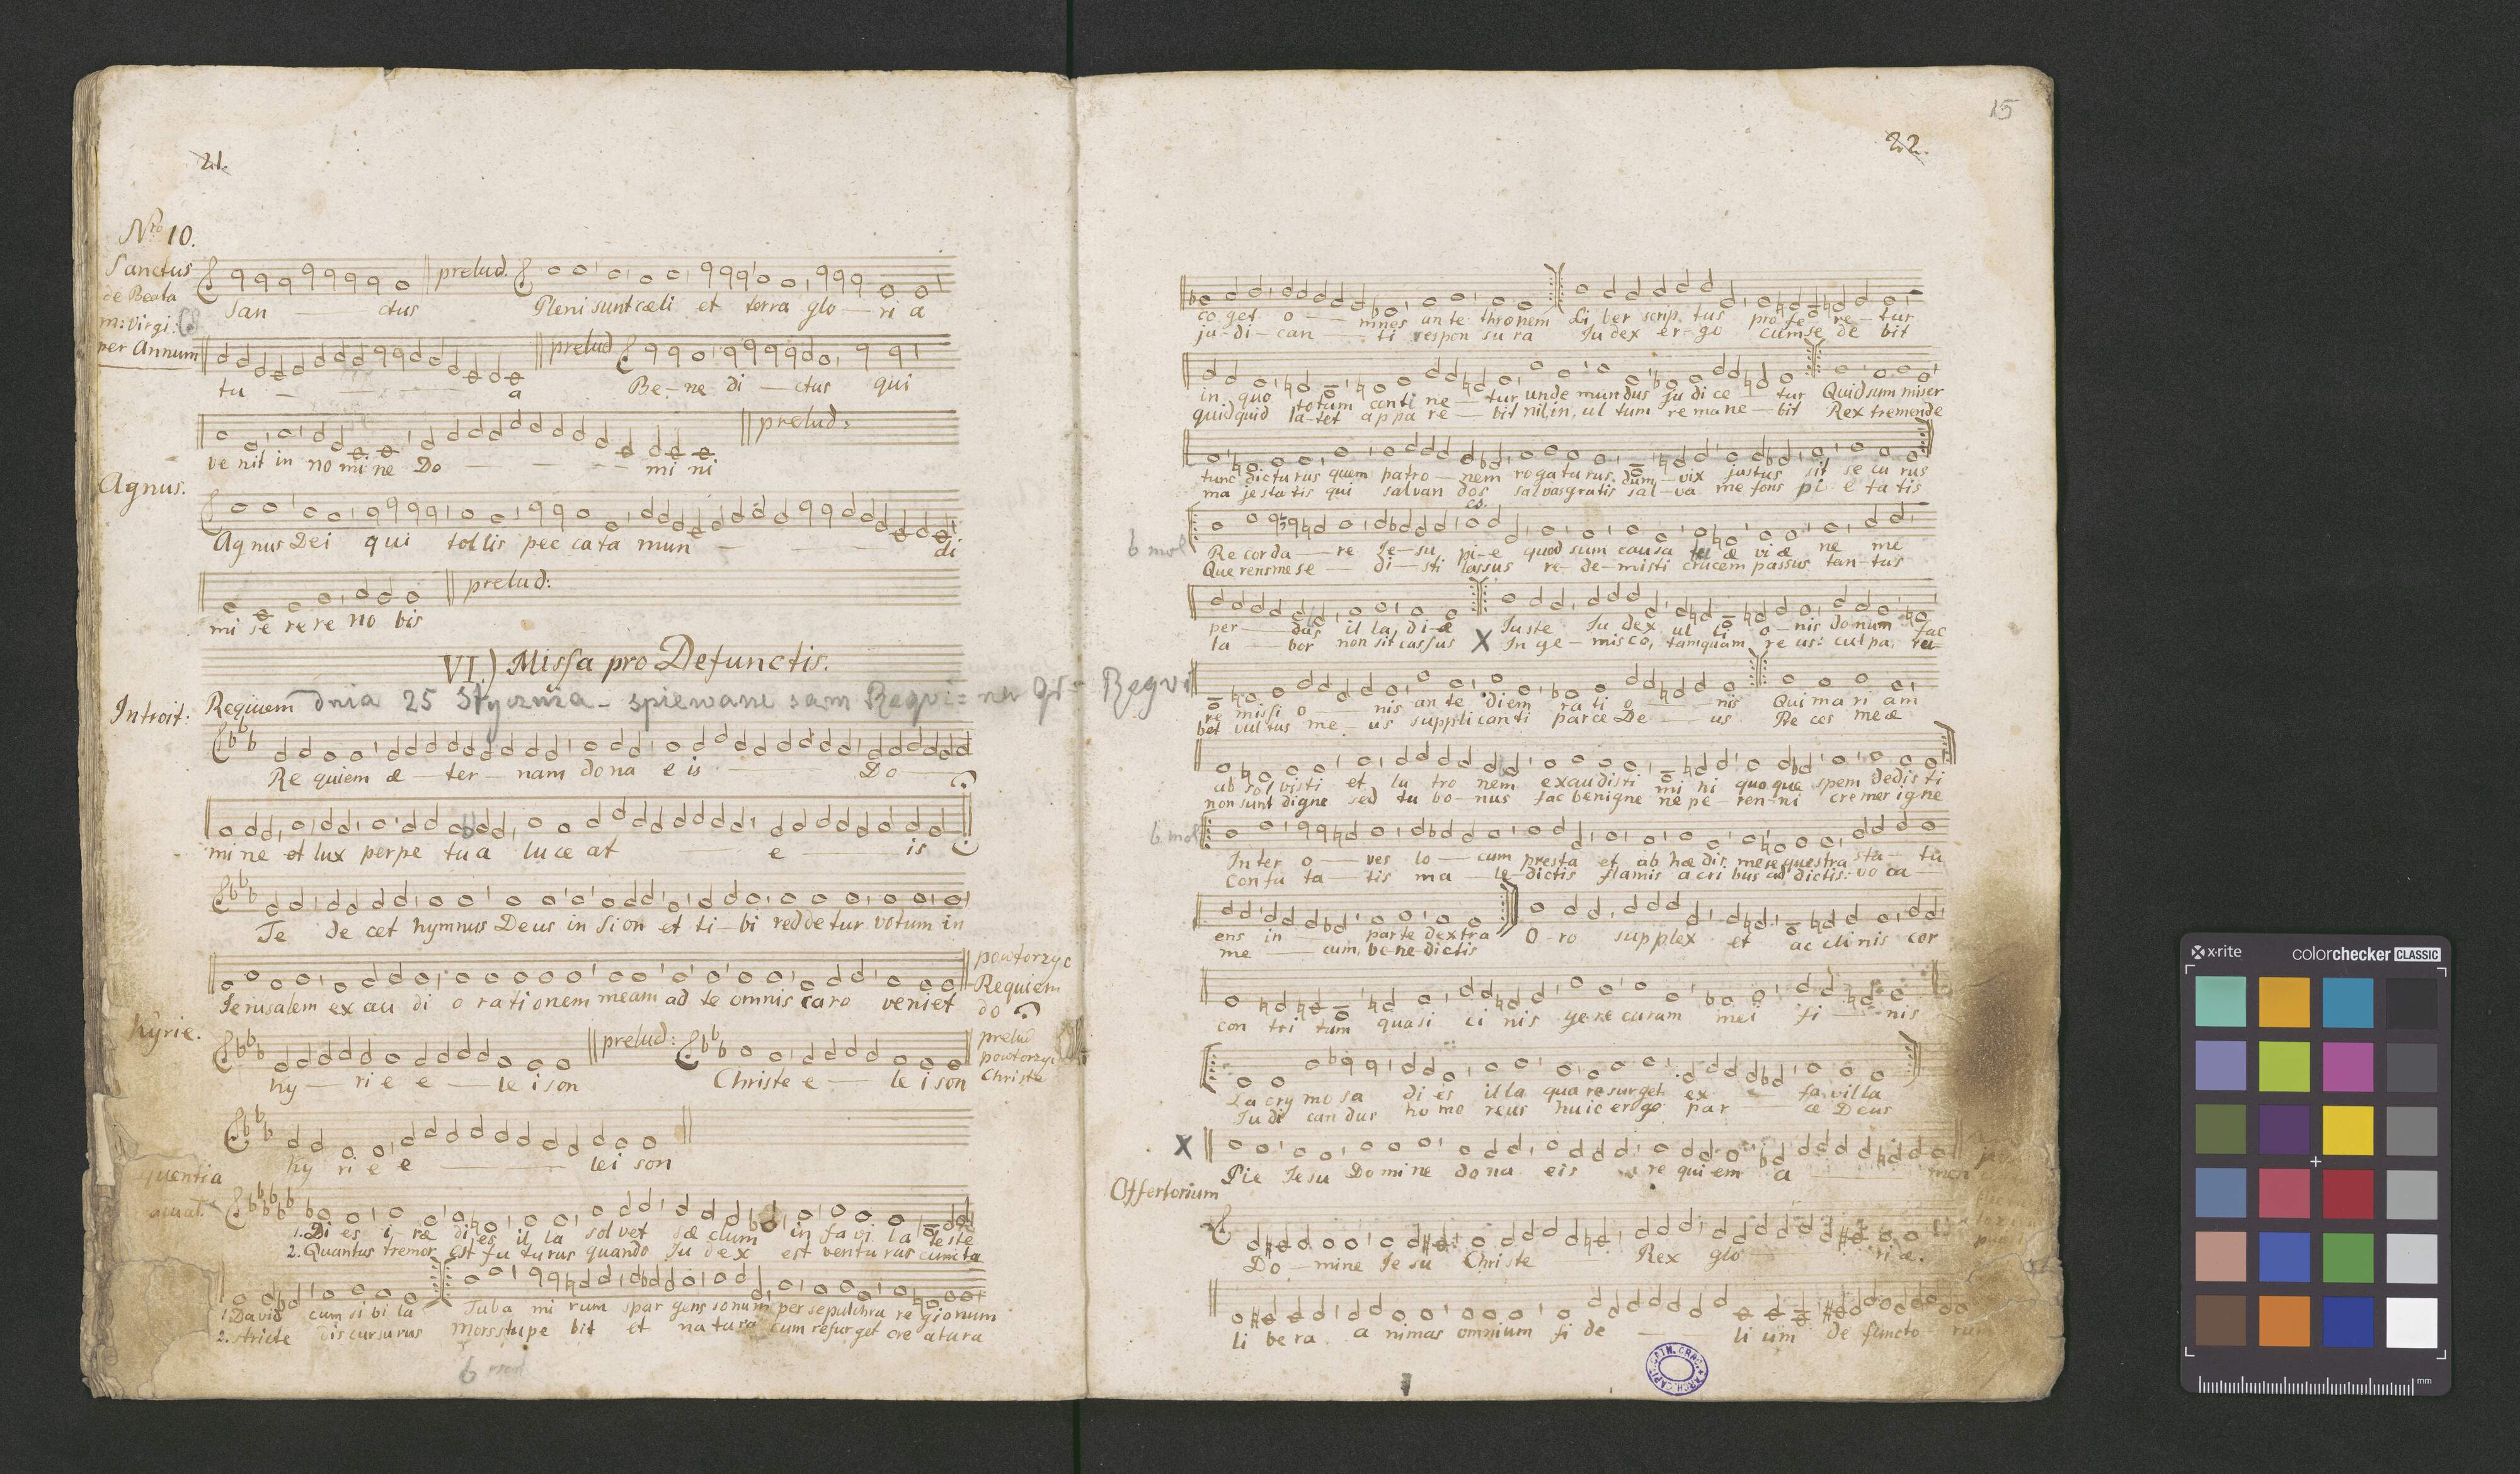 21.
Nro 10.
Sanctus
de Beata
m: Virgi:
per Annum
prelud.
San — ctus Pleni sunt cæli et terra glo — ri a
prelud
tu — — — a Be — ne di — ctus qui
prelud:
ve nit in no mi ne Do — — — mi ni
Agnus.
Agnus Dei qui tollis pec ca ta mun — — — di
prelud:
mi se re re no bis
VI.) Missa pro Defunctis.
Introit: Requiem dnia 25 Stycznia - spiewane sam
Re quiem æ — ter — nam dona e is — Do
mine et lux perpe tua luce at — e — is
Te de cet hymnus Deus in Sion et ti — bi reddetur votum in
powtorzyc
Requiem
do
Jerusalem ex au di o rationem meam ad te omnis caro veniet
Kyrie.
prelud:
prelud
powtorzyc
Christe
ky — ri e e — le i son Christe e — le i son
ky ri e e — lei son
1. Di es i ræ di es il la solvet sæ clum in fa vi la teste
2. Quantus tremor est fu turus quando Ju dex est venturus cuncta
1. David cum si bi la Tuba mi rum spar gens sonum per sepulchra re gionum
2. stricte discursurus Mors stupe bit et natura cum resurget cre atura
b mol
15
22.
co get o — mnes an te thronem Li ber scrip tus pro fe re — tur
ju — di — can — ti respon su ra Judex er — go cum se de bit
in quo totum conti ne — tur unde mundus ju di ce — tur Quid sum miser
quidquid la — tet appa re — bit nil in, ul tum re ma ne — bit Rex tremende
tunc dicturus quem patro — nem rogaturus dum — vix justus sit se cu rus
ma jestatis qui salvan dos salvas gratis sal — va me fons pi e ta tis
b mol
Recorda — re Je — su pi — e quod sum causa tu æ vi æ ne me
Querens me se — di — sti lassus re — de — misti crucem passus tan — tus
per — das il la di — æ Juste Ju dex ul ti o — nis donum fac
la — bor non sit cassus X In ge — mis co, tamquam re us: culpa, ru =
re missi o — nis an te diem ra ti o — nis Qui ma ri am
bet vul tus me — us supplicanti parce De — us Pre ces meæ
ab sol visti et la tro nem exaudisti mi hi quo que spem dedis ti
non sunt digne sed tu bo — nus fac benigne ne pe — ren — ni cremer igne
b mol
Inter o — ves lo — cum presta et ab hædis me sequestra sta — tu
Confu ta — tis ma — le dictis flamis acri bus ad dictis: vo ca —
ens in — parte dextra O — ro supplex et ac cli nis cor
me — cum, be — ne — dictis
con tri tum quasi ci nis ge — re curam mei fi — nis
La cry mo sa di es il la qua resurget ex — favilla
Judi can dus ho mo reus huic er go par — ce Deus
X
Pie Jesu Domine dona eis re qui em a — men
Offertorium
Do — mine Je su Christe — Rex glo — ri æ.
li be ra a nimas omnium fi de — li um de functo rum
ARCH. CAPIT. CATH. CRAC.
x-rite colorchecker CLASSIC
mm